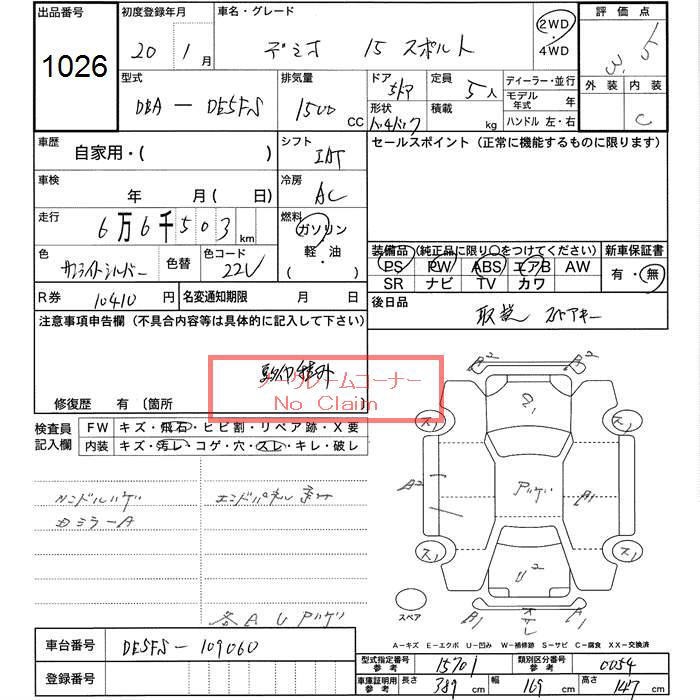 出品番号
1026
初度登録年月
20年 1月
車名・グレード
デミオ 15 スポルト
2WD
4WD
評価点
3.5
外装
内装
C
型式
DBA-DE5FS
排気量
1500 CC
ドア
5ドア
形状
定員
5人
積載
kg
ディーラー・並行
モデル年式 年
ハンドル 左・右
車歴
自家用・( )
シフト
IAT
セールスポイント (正常に機能するものに限ります)
車検
年 月 ( 日)
冷房
AC
走行
6万6千503km
燃料
ガソリン
軽・油
・( )
色
サンライトシルバー
色替
色コード
22V
装備品(純正品に限り○をつけてください)
PS PW ABS エアB AW
SR ナビ TV カワ
新車保証書
有・無
R券
10410円
名変通知期限 月 日
後日品
取説 スペアキー
注意事項申告欄(不具合内容等は具体的に記入して下さい)
ノークレームコーナー
No Claim
修復歴 有 〔箇所 〕
検査員記入欄
FW
キズ・飛石・ヒビ割・リペア跡・X要
内装
キズ・汚レ・コゲ・穴・スレ・キレ・破レ
ハンドルハゲ
ミラーA
エンドパネル
各AU アバゲ
A2
A2
スレ
スペア
A1
B1
A1
A-キズ E-エクボ U-凹み W-補修跡 S-サビ C-腐食 XX-交換済
車台番号
DE5FS-109060
登録番号
型式指定番号 参考
15701
類別区分番号 参考
0054
車庫証明用 参考
長さ 389 cm
幅 169 cm
高さ 147 cm